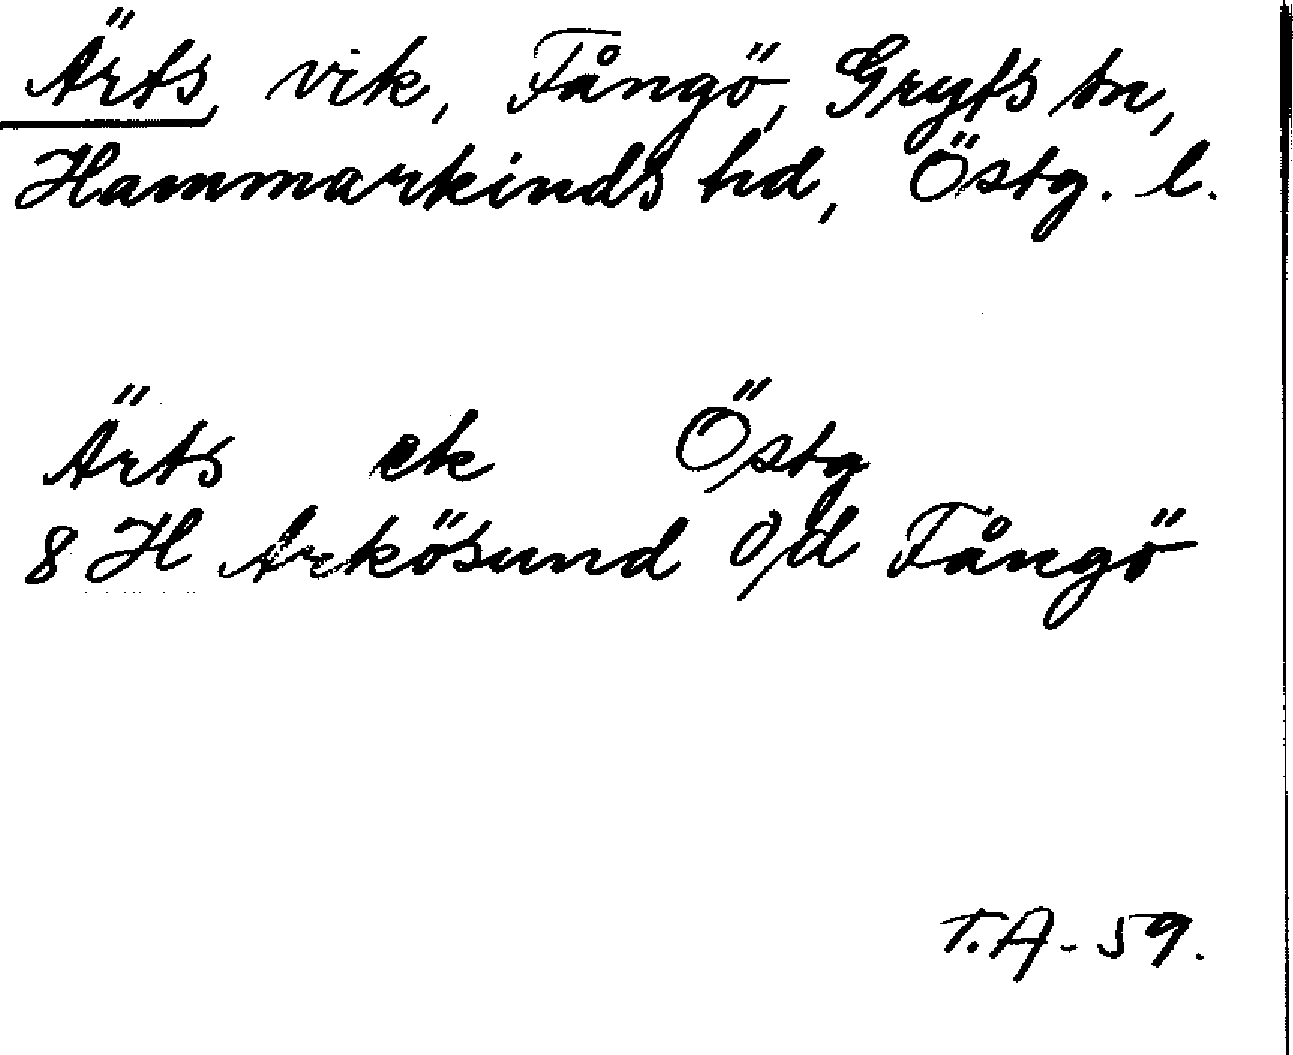 Ärts, vik, Fångö, Gryts sn,
Hammarkinds hd, Östg. l.
Ärts ek Östg
8 H Arkösund O/d Fångö
T.A - 59.